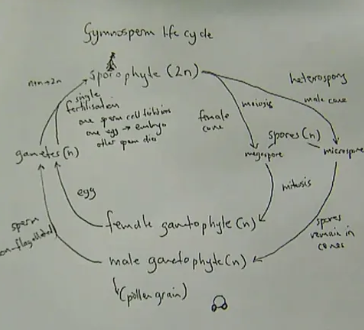 Gymnosperm life cycle
sporophyte (2n)
n+n→2n
single
fertilisation
one sperm cell
one egg → embryo
other sperm dies
heterospory
meiosis
male cone
female
cone
spores (n)
megaspore
microspore
gametes (n)
mitosis
egg
female gamtophyte (n)
sperm
non-flagellated
spores
remain in
cones
male gamtophyte (n)
(pollen grain)